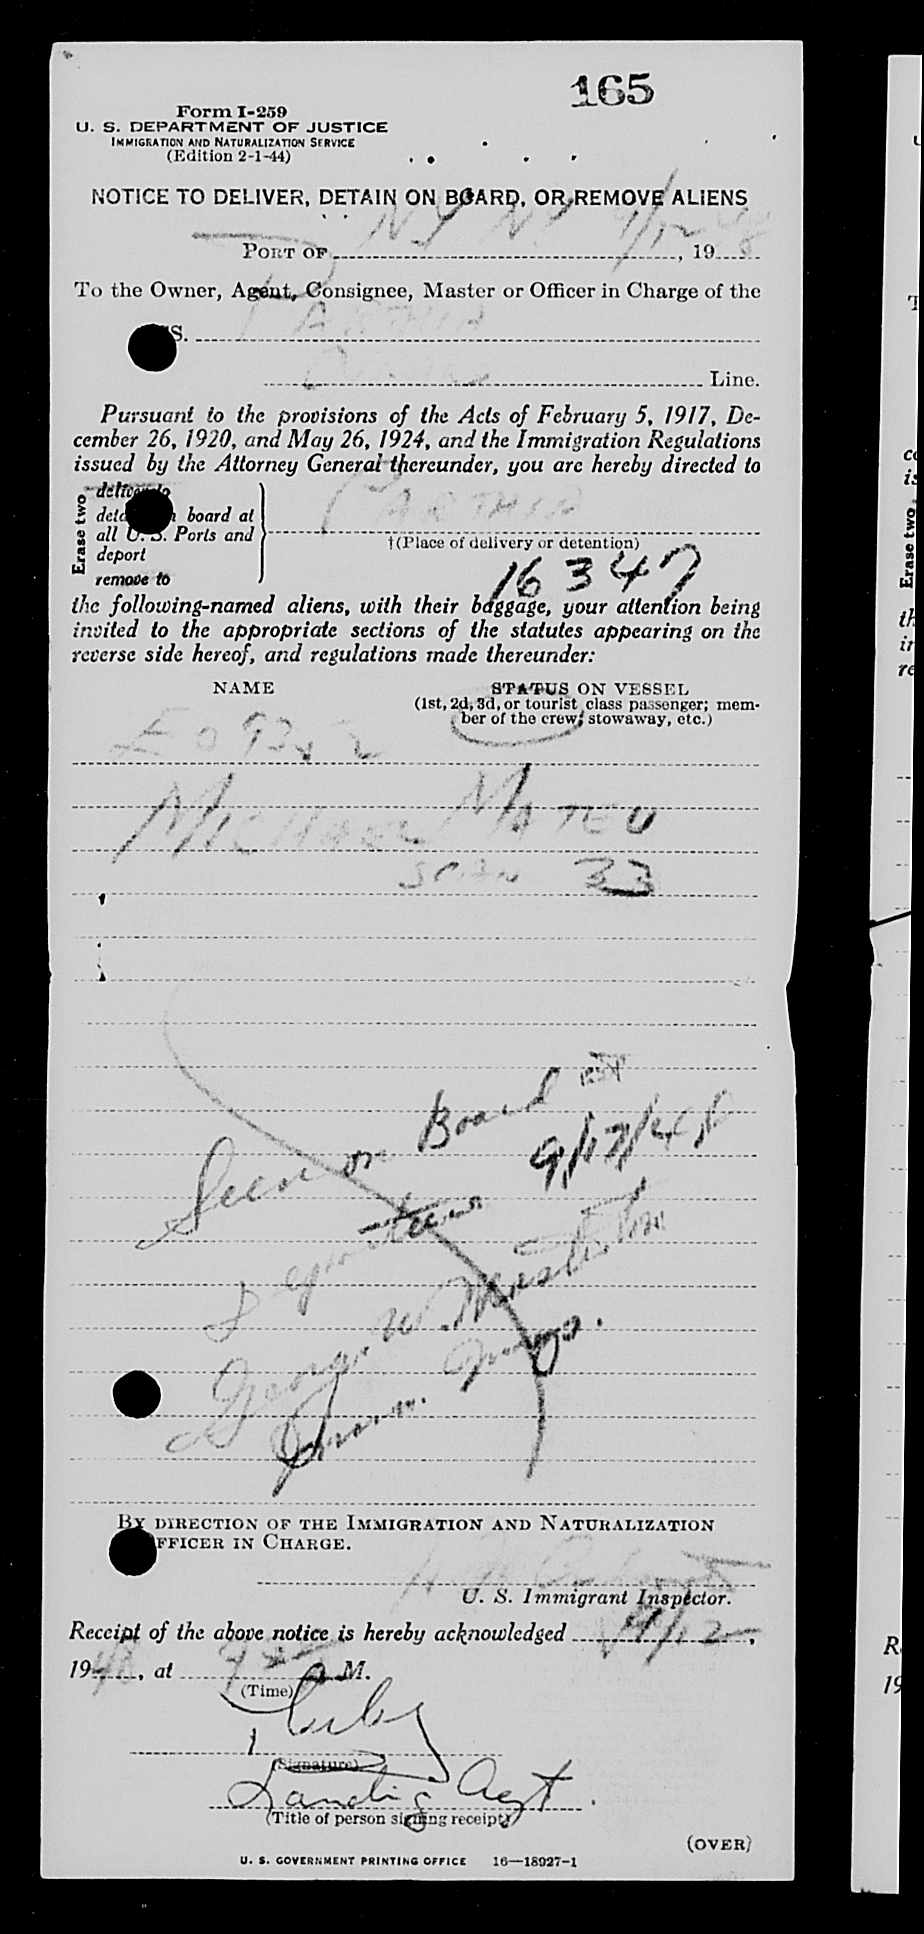 165
Form I-259
U. S. DEPARTMENT OF JUSTICE
IMMIGRATION AND NATURALIZATION SERVICE
(Edition 2-1-44)
NOTICE TO DELIVER, DETAIN ON BOARD, OR REMOVE ALIENS
PORT OF NY NY 9/12, 1948
To the Owner, Agent, Consignee, Master or Officer in Charge of the
S. PARTHIA
Line.
Pursuant to the provisions of the Acts of February 5, 1917, De-
cember 26, 1920, and May 26, 1924, and the Immigration Regulations
issued by the Attorney General thereunder, you are hereby directed to
Erase two
deliver to
board at
all U. S. Ports and
deport
remove to
PARTHIA
†(Place of delivery or detention)
16347
the following-named aliens, with their baggage, your attention being
invited to the appropriate sections of the statutes appearing on the
reverse side hereof, and regulations made thereunder:
NAME
STATUS ON VESSEL
(1st, 2d, 3d, or tourist class passenger; mem-
ber of the crew, stowaway, etc.)
MICHAEL MATEU
33
Seen on Board
9/12/48
Departure
George W.
By DIRECTION OF THE IMMIGRATION AND NATURALIZATION
FFICER IN CHARGE.
U. S. Immigrant Inspector.
Receipt of the above notice is hereby acknowledged 9/12,
1948, at M.
(Time)
(Signature)
Landing Agt.
(Title of person signing receipt)
(OVER)
U. S. GOVERNMENT PRINTING OFFICE 16—18927-1